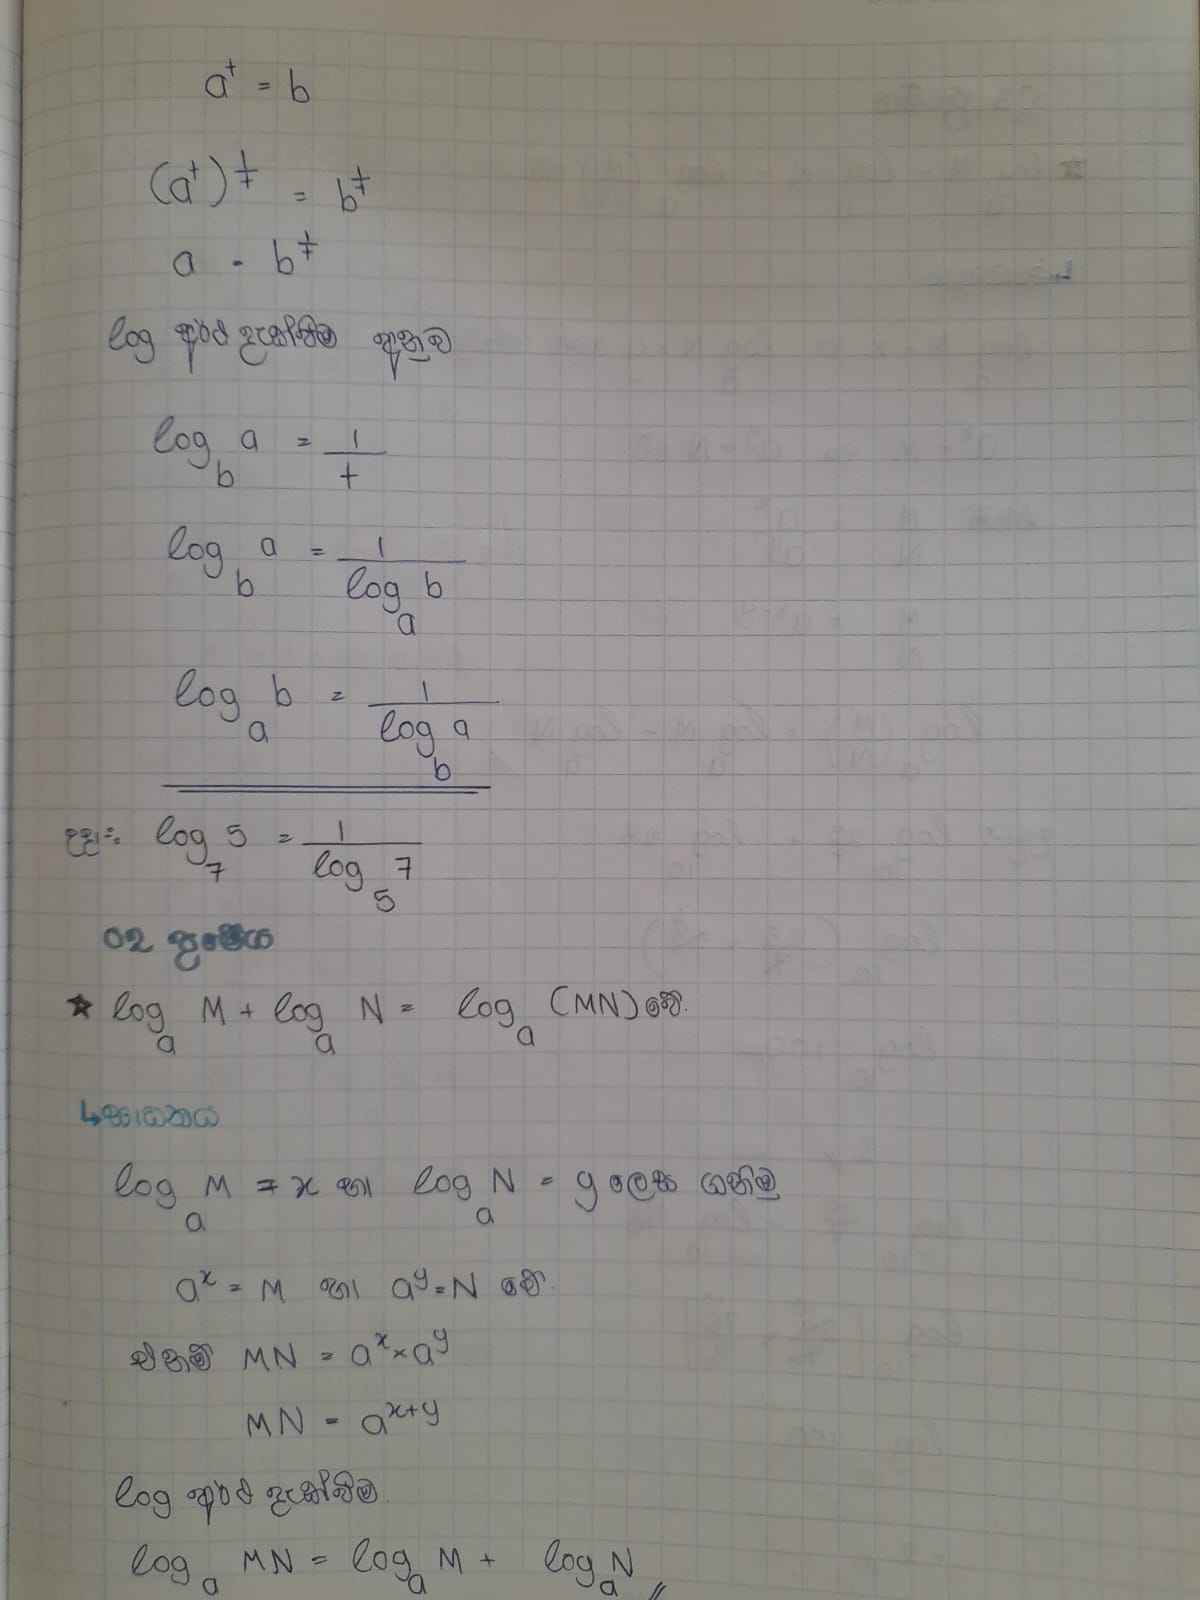 a^t = b
(a^t)^1/t = b^1/t
a = b^1/t
log අර්ථ දැක්වීම අනුව
log_b a = 1/t
log_b a = 1/log_a b
log_a b = 1/log_b a
උදා:- log_7 5 = 1/log_5 7
02 ප්‍රමේය
★ log_a M + log_a N = log_a (MN) වේ.
↳ සාධනය
log_a M = x හා log_a N = y ලෙස ගනිමු
a^x = M හා a^y = N වේ.
එනම් MN = a^x × a^y
MN = a^x+y
log අර්ථ දැක්වීම.
log_a MN = log_a M + log_a N //